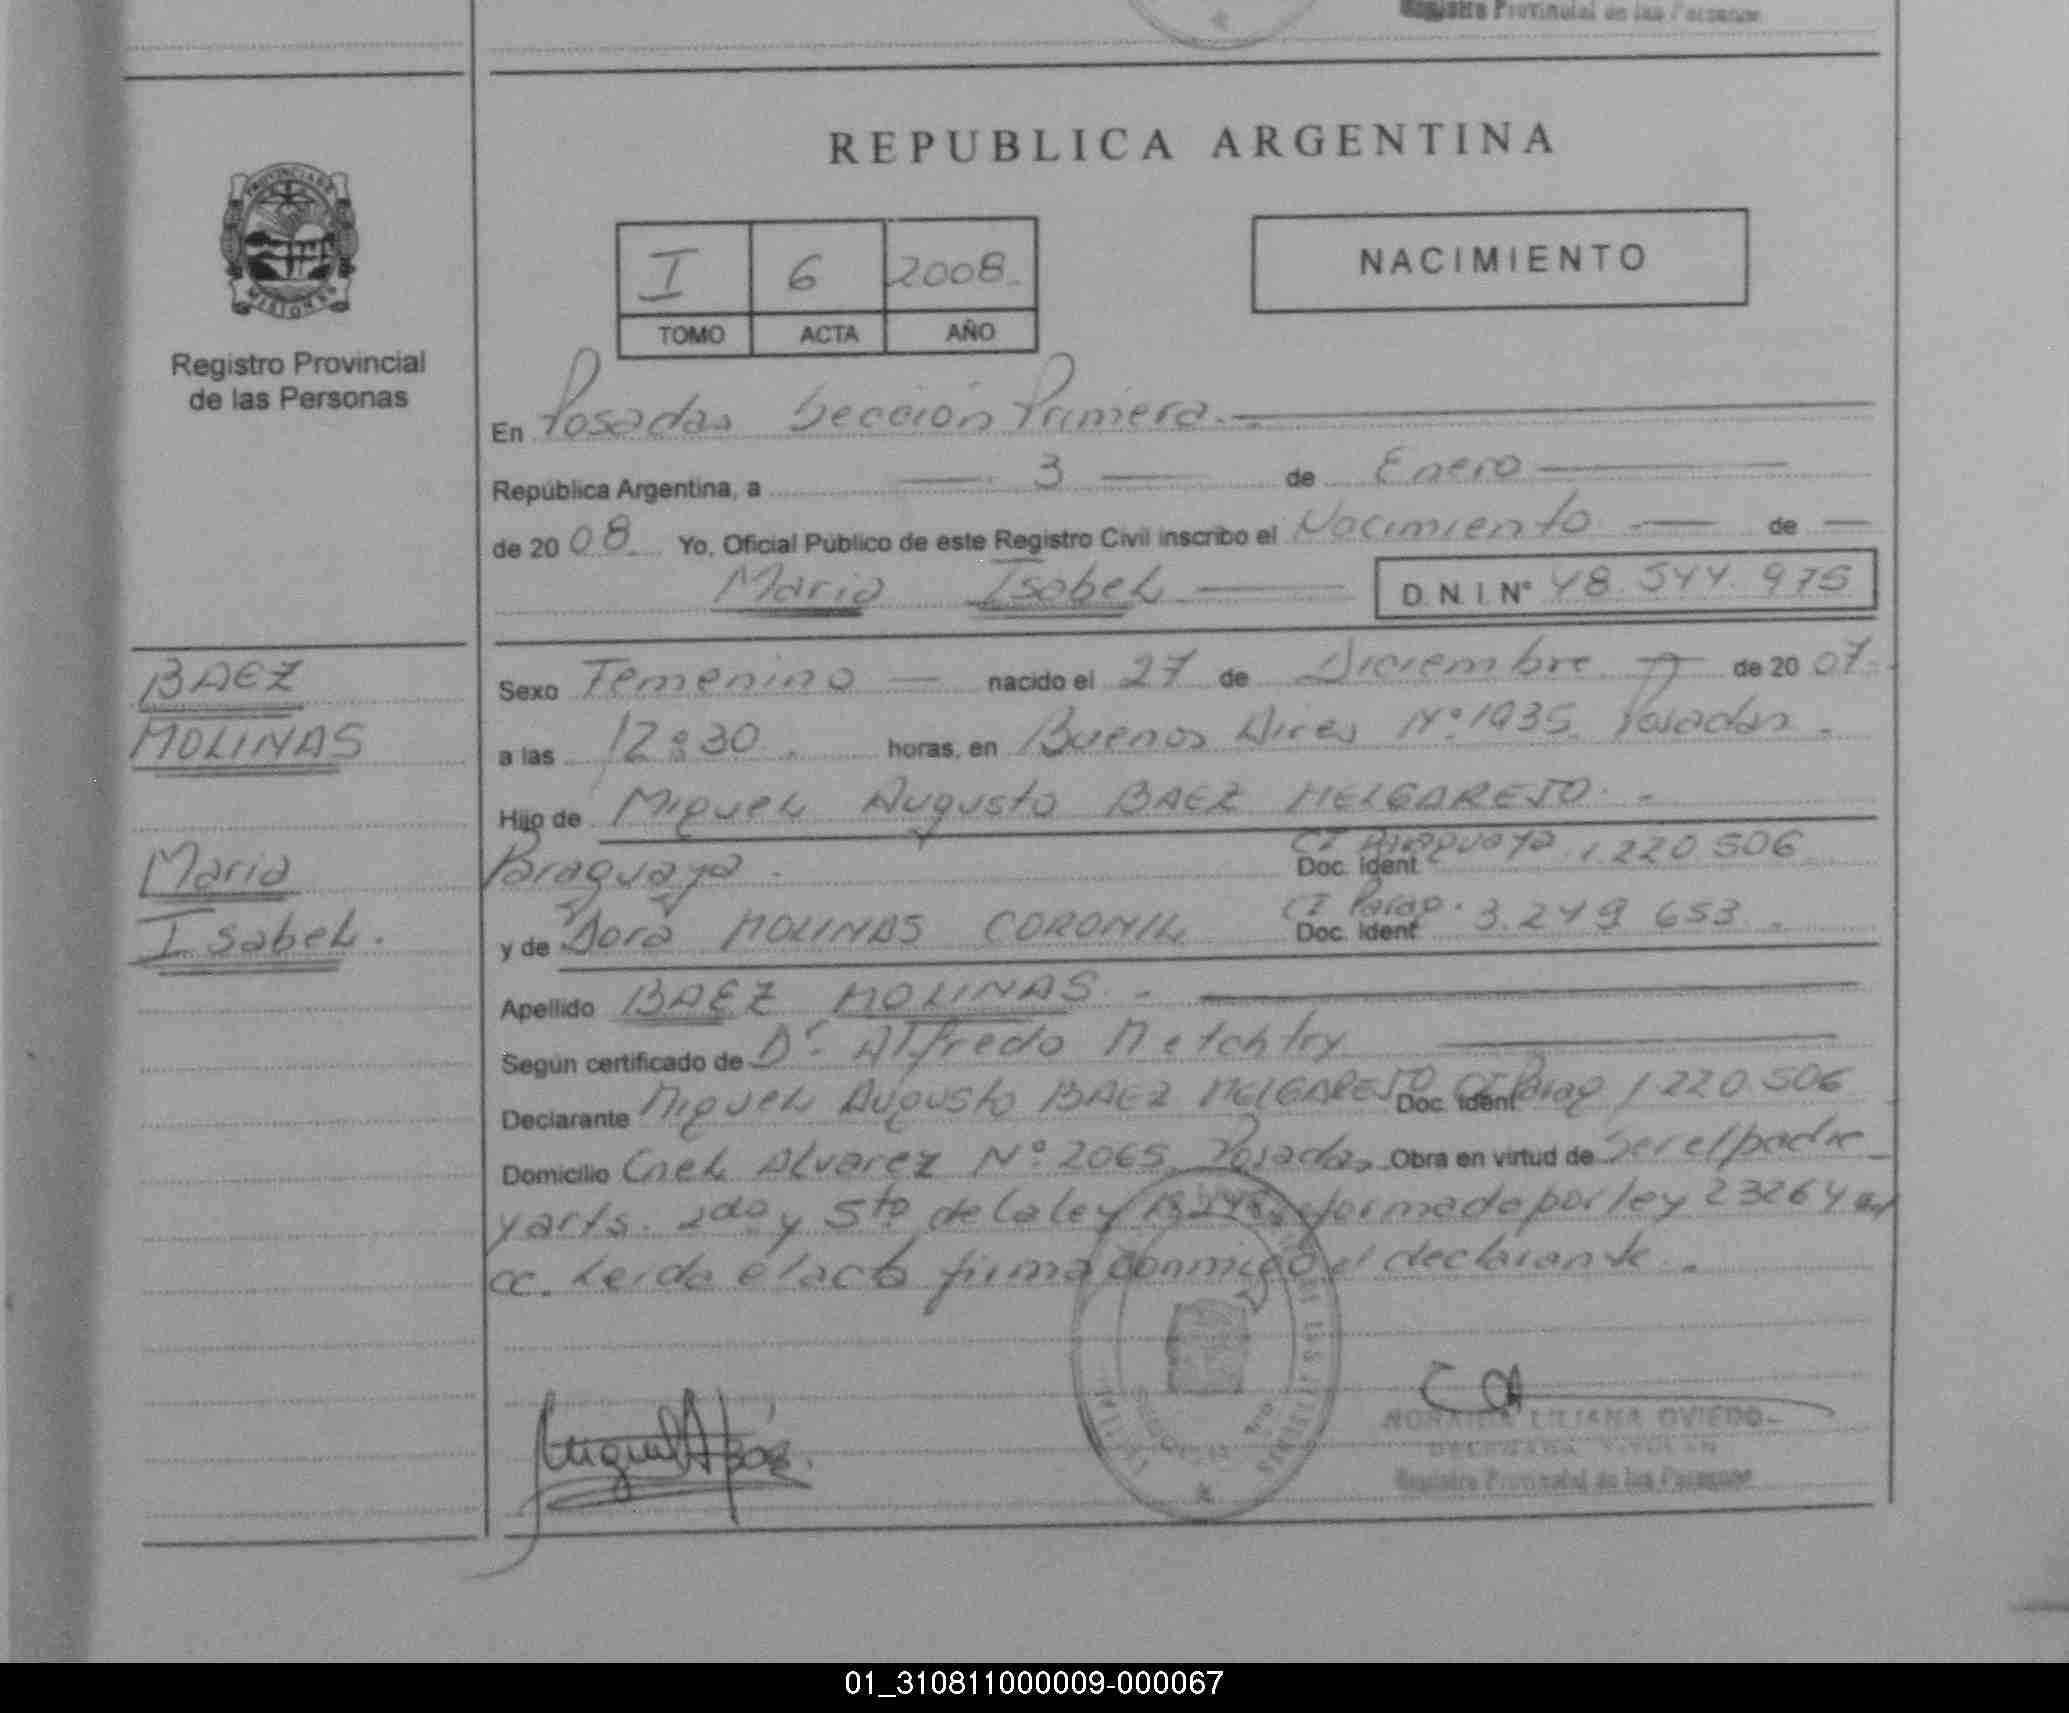 Registro Provincial de las Personas
REPUBLICA ARGENTINA
PROVINCIA DE
MISIONES
Registro Provincial
de las Personas
I 6 2008
TOMO ACTA AÑO
NACIMIENTO
En Posadas Sección Primera.
República Argentina, a 3 de Enero
de 2008 Yo, Oficial Público de este Registro Civil inscribo el Nacimiento de
Maria Isabel D.N.I. Nº 48.544.975
BAEZ
MOLINAS
Maria
Isabel.
Sexo Femenino nacido el 27 de Diciembre de 2007
a las 12:30 horas, en Buenos Aires Nº 1935 Posadas.
Hijo de Miguel Augusto BAEZ MELGAREJO.
Paraguaya. Doc. Ident CI Paraguaya 1.220.506
y de Dora MOLINAS CORONIL Doc. Ident CI Parag. 3.249.653.
Apellido BAEZ MOLINAS.
Según certificado de Dr. Alfredo
Declarante Miguel Augusto BAEZ MELGAREJO Doc. Ident CI Parag 1220.506
Domicilio Cnel Alvarez Nº 2065 Posadas Obra en virtud de ser el padre
y arts. 2do y 5to de la ley 18.248 reformado por ley 23264
cc. Leida el acta firma conmigo el declarante.
NORAIDA LILIANA OVIEDO
DELEGADA TITULAR
Registro Provincial de las Personas
01_310811000009-000067